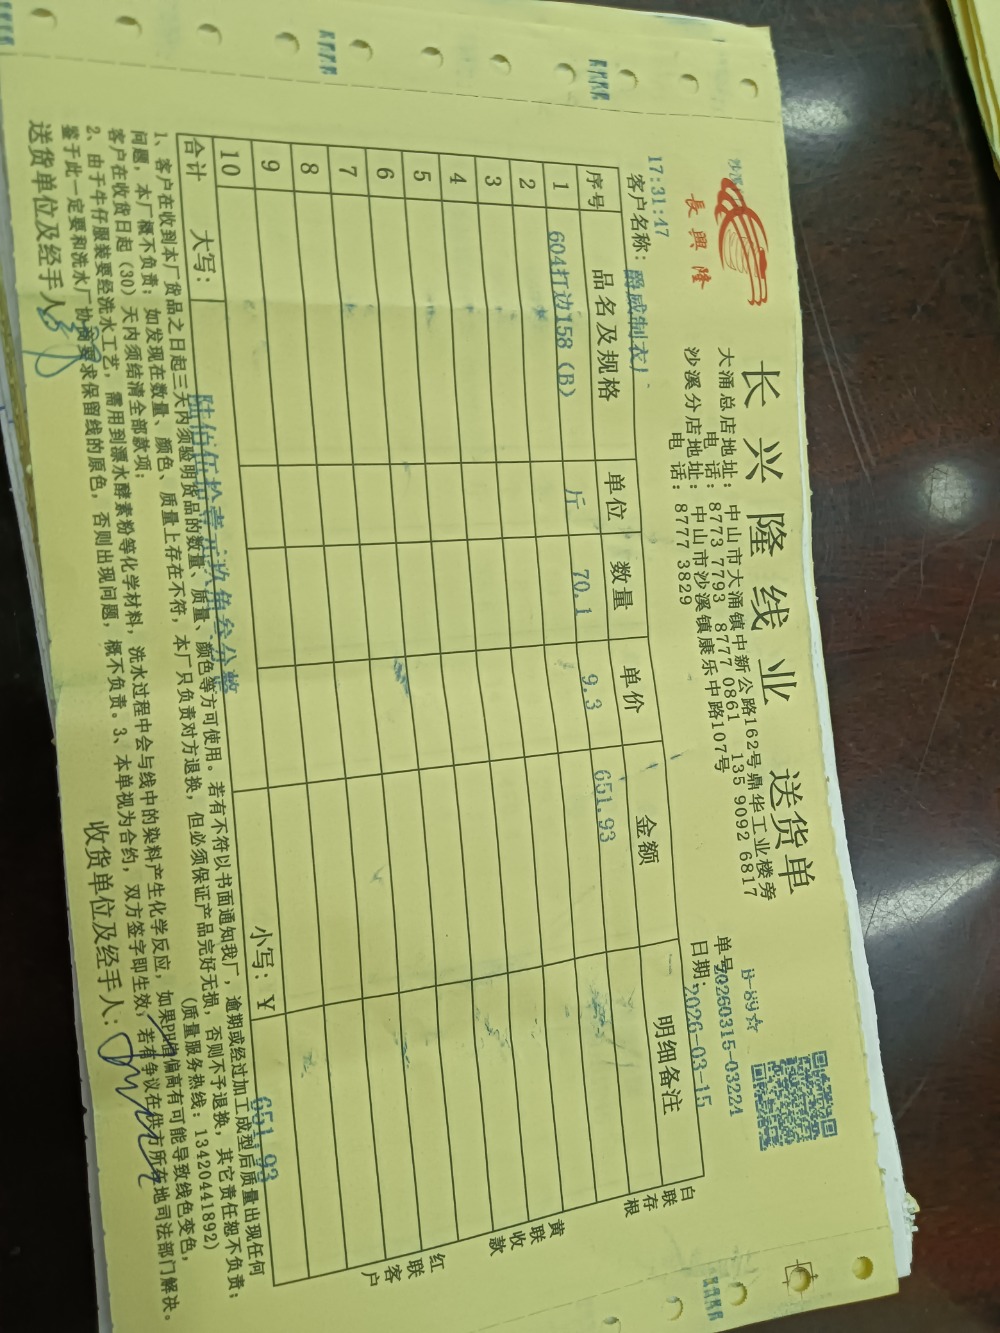 長興隆
长兴隆线业 送货单
大涌总店地址：中山市大涌镇中新公路162号鼎华工业楼旁
电话：8773 7793 8777 0861 135 9092 6817
沙溪分店地址：中山市沙溪镇康乐中路107号
电话：8777 3829
B-89☆
单号20260315-03224
日期：2026-03-15
17:31:47
客户名称：爵威制衣厂
序号 品名及规格 单位 数量 单价 金额 明细备注
1 604打边158（B） 斤 70.1 9.3 651.93
2
3
4
5
6
7
8
9
10
合计 大写：陆佰伍拾壹元玖角叁分整 小写：￥ 651.93
白联存根
黄联收款
红联客户
1、客户在收到本厂货品之日起三天内须验明货品的数量、质量、颜色等方可使用。若有不符以书面通知我厂，逾期或经过加工成型后质量出现任何
问题，本厂概不负责；如发现在数量、颜色、质量上存在不符，本厂只负责对方退换，但必须保证产品完好无损，否则不予退换，其它责任恕不负责；
客户在收货日起（30）天内须结清全部款项； （质量服务热线：13420441892）
2、由于牛仔服装要经洗水工艺，需用到漂水酵素粉等化学材料，洗水过程中会与线中的染料产生化学反应，如果PH值偏高有可能导致线色变色，
鉴于此一定要和洗水厂协商要求保留线的原色，否则出现问题，概不负责。3、本单视为合约，双方签字即生效，若有争议在供方所在地司法部门解决。
送货单位及经手人： 收货单位及经手人：